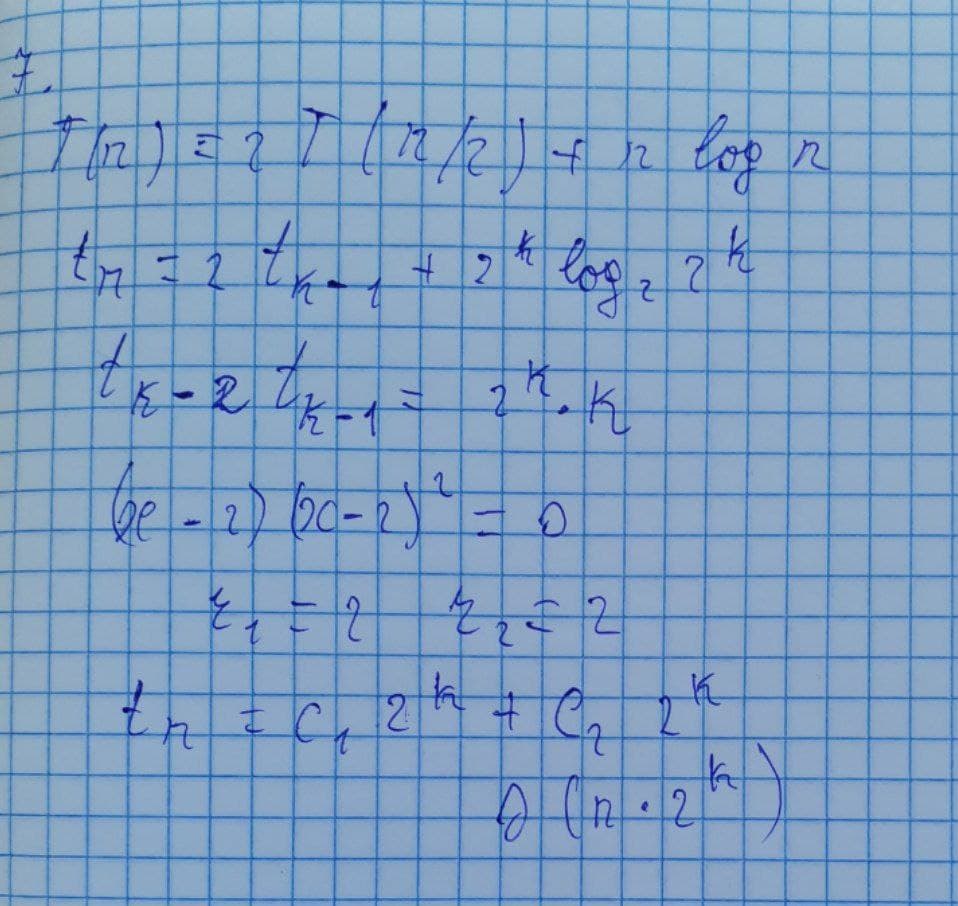 7.
T(n) = 2 T (n/2) + n log n
tn = 2 tk-1 + 2^k log2 2^k
tk - 2 tk-1 = 2^k · k
(x - 2) (x - 2)^2 = 0
r1 = 2 r2 = 2
tn = c1 2^k + c2 2^k
O (n · 2^k)